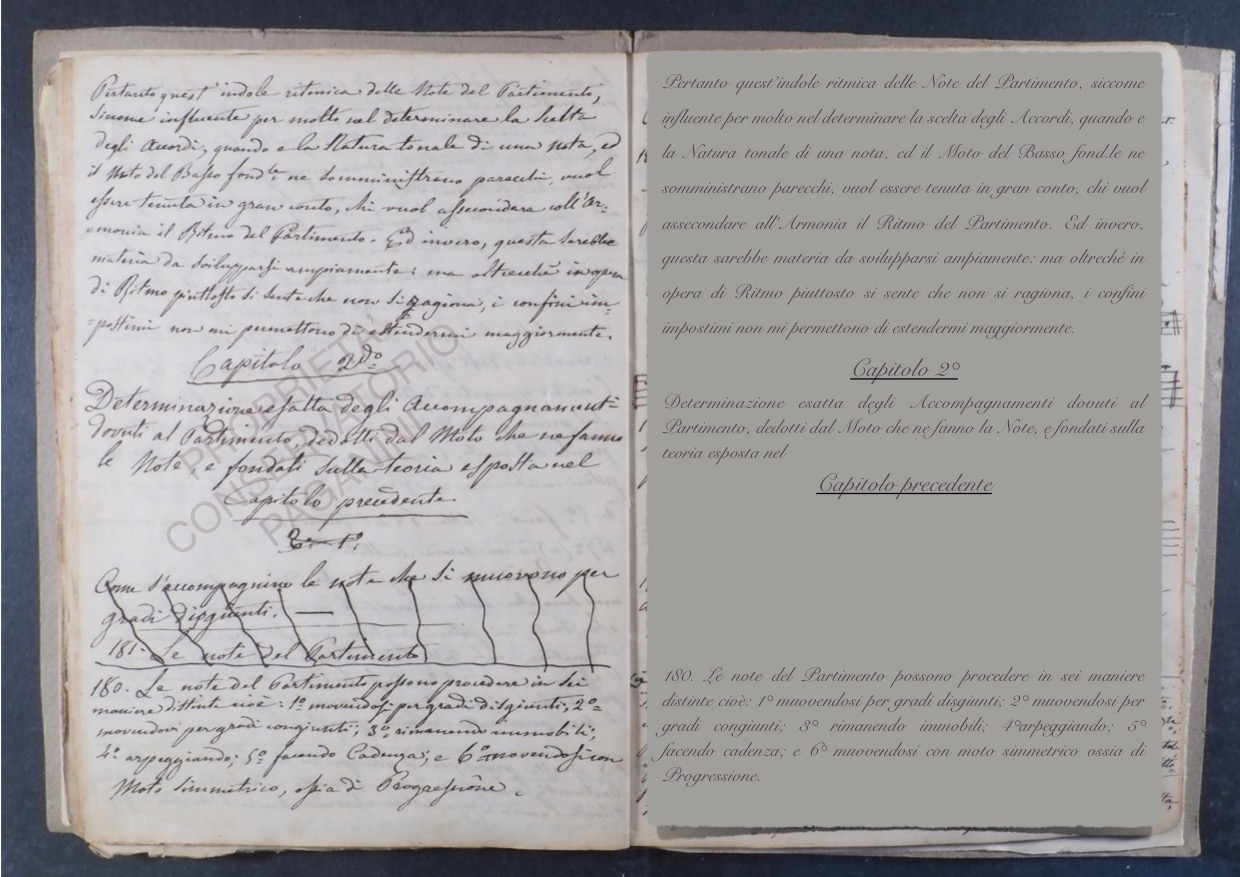 Pertanto quest'indole ritmica delle Note del Partimento,
siccome influente per molto nel determinare la scelta
degli Accordi, quando e la Natura tonale di una nota, ed
il Moto del Basso fond.le ne somministrano parecchi, vuol
essere tenuta in gran conto, chi vuol assecondare coll'Ar-
=monia il Ritmo del Partimento. Ed invero, questa sarebbe
materia da svilupparsi ampiamente: ma oltrecché in opera
di Ritmo piuttosto si sente che non si ragiona, i confini im-
=postimi non mi permettono di estendermi maggiormente.
Capitolo 2do
Determinazione esatta degli Accompagnamenti
dovuti al Partimento, dedotti dal Moto che ne fanno
le Note, e fondati sulla teoria esposta nel
Capitolo precedente
Come s'accompagnino le note che si muovono per
gradi disgiunti.
181. Le note del Partimento
180. Le note del Partimento possono procedere in sei
maniere distinte cioè: 1º movendosi per gradi disgiunti; 2º
movendosi per gradi congiunti; 3º rimanendo immobili;
4º arpeggiando; 5º facendo Cadenza; e 6º movendosi con
Moto simmetrico, ossia di Progressione.
PROPRIETA'
CONSERVATORIO
PAGANINI
Pertanto quest'indole ritmica delle Note del Partimento, siccome
influente per molto nel determinare la scelta degli Accordi, quando e
la Natura tonale di una nota, ed il Moto del Basso fond.le ne
somministrano parecchi, vuol essere tenuta in gran conto, chi vuol
assecondare all'Armonia il Ritmo del Partimento. Ed invero,
questa sarebbe materia da svilupparsi ampiamente: ma oltreché in
opera di Ritmo piuttosto si sente che non si ragiona, i confini
impostimi non mi permettono di estendermi maggiormente.
Capitolo 2°
Determinazione esatta degli Accompagnamenti dovuti al
Partimento, dedotti dal Moto che ne fanno la Note, e fondati sulla
teoria esposta nel
Capitolo precedente
180. Le note del Partimento possono procedere in sei maniere
distinte cioè: 1° muovendosi per gradi disgiunti; 2° muovendosi per
gradi congiunti; 3° rimanendo immobili; 4°arpeggiando; 5°
facendo cadenza; e 6° muovendosi con moto simmetrico ossia di
Progressione.